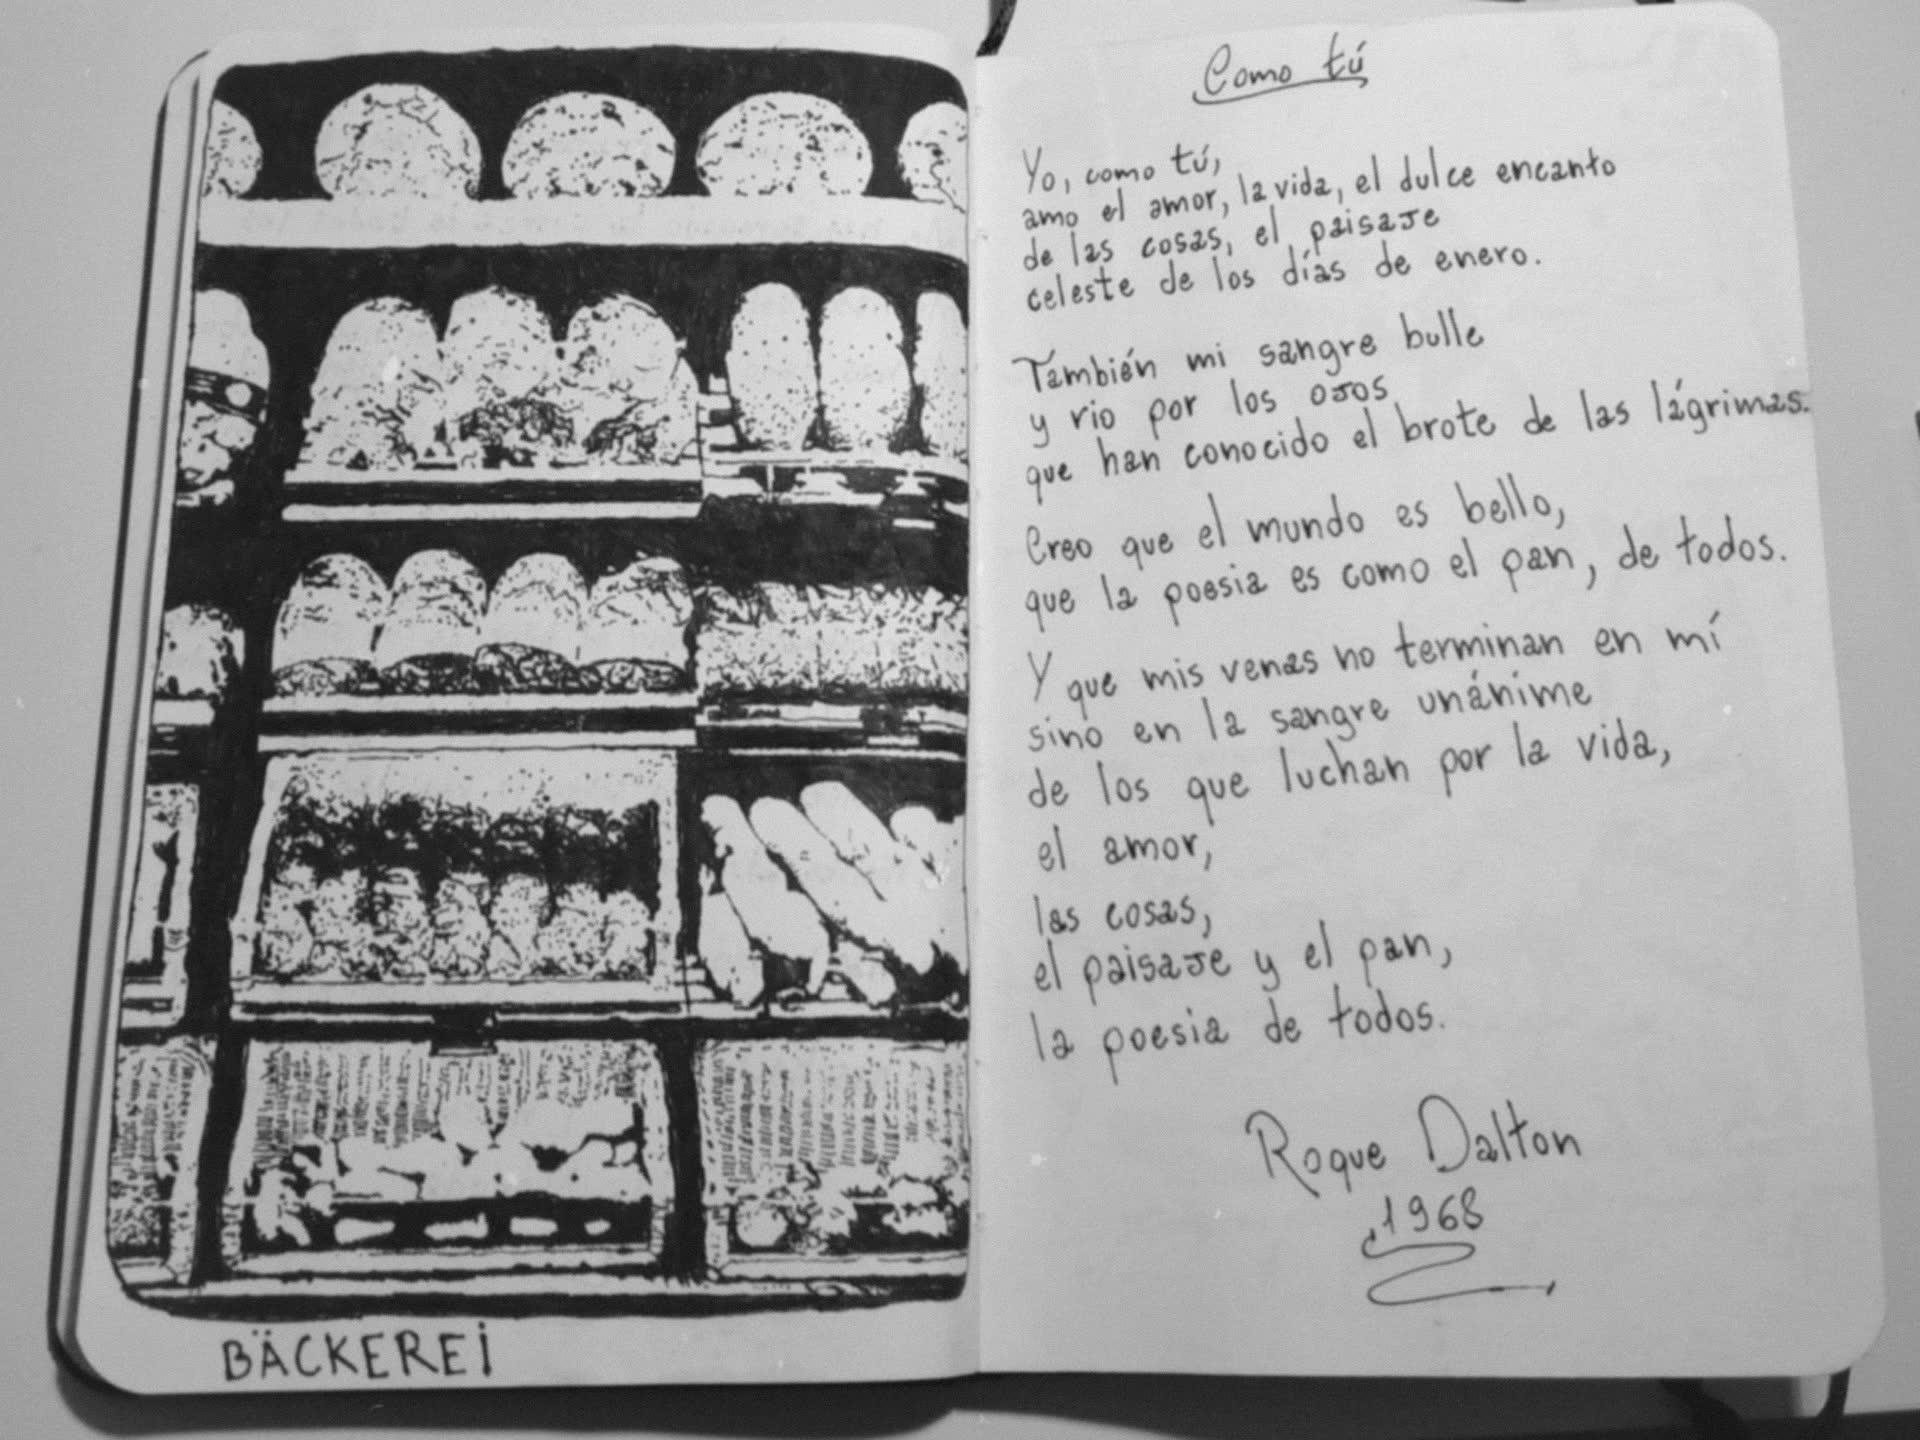 BÄCKEREI
Como tú
Yo, como tú,
amo el amor, la vida, el dulce encanto
de las cosas, el paisaje
celeste de los días de enero.
También mi sangre bulle
y rio por los ojos
que han conocido el brote de las lágrimas.
Creo que el mundo es bello,
que la poesia es como el pan, de todos.
Y que mis venas no terminan en mí
sino en la sangre unánime
de los que luchan por la vida,
el amor,
las cosas,
el paisaje y el pan,
la poesia de todos.
Roque Dalton
1968